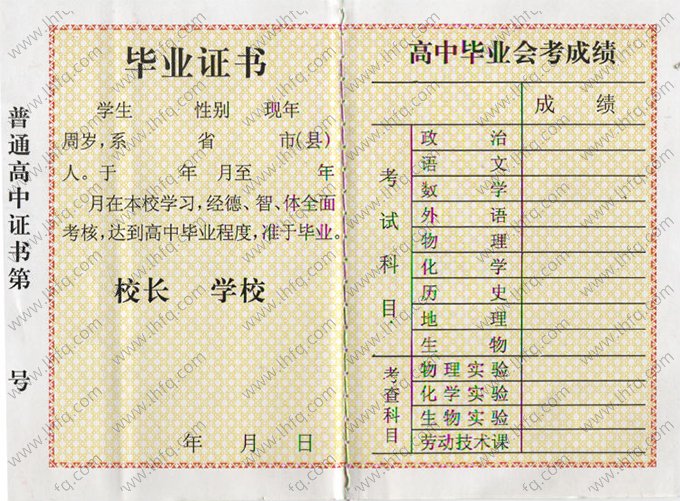 普通高中证书第 号
毕业证书
学生 性别 现年
周岁，系 省 市(县)
人。于 年 月至 年
月在本校学习，经德、智、体全面
考核，达到高中毕业程度，准于毕业。
校长 学校
年 月 日
高中毕业会考成绩
成 绩
考试科目
政 治
语 文
数 学
外 语
物 理
化 学
历 史
地 理
生 物
考查科目
物理实验
化学实验
生物实验
劳动技术课
www.lhfq.com